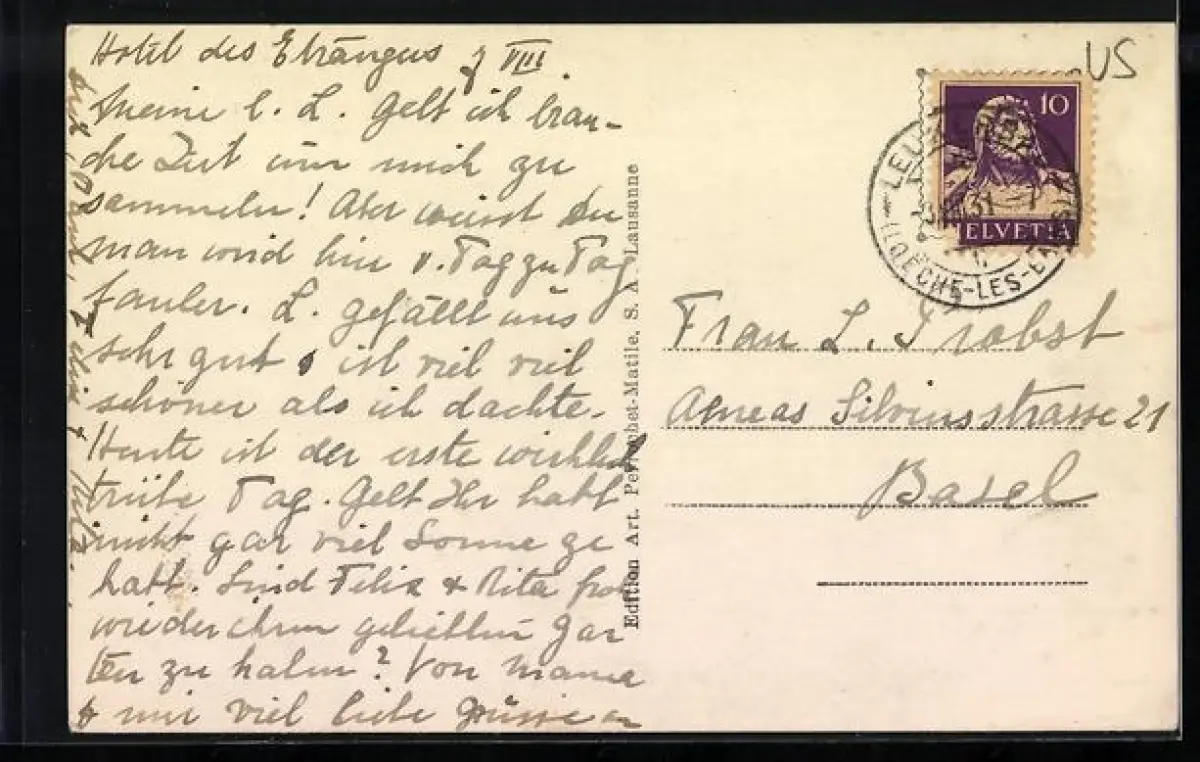 Hotel des Etrangers 7 VIII.
Meine l. L. Gelt ich brau-
che Zeit um mich zu
sammeln! Aber weisst Du
man wird hier v. Tag zu Tag
fauler. L. gefällt uns
sehr gut & ist viel viel
schöner als ich dachte.
Heute ist der erste wirklich
trübe Tag. Gelt Ihr habt
nicht gar viel Sonne ge
habt. Sind Felix & Rita froh
wieder ihren geliebten Gar
ten zu haben? Von Mama
& mir viel liebe Grüsse an
Edition Art. Perrochet-Matile. S. A. Lausanne
US
10
HELVETIA
LOÈCHE-LES-BAINS
Frau L. Probst
Aeneas Silviusstrasse 21
Basel